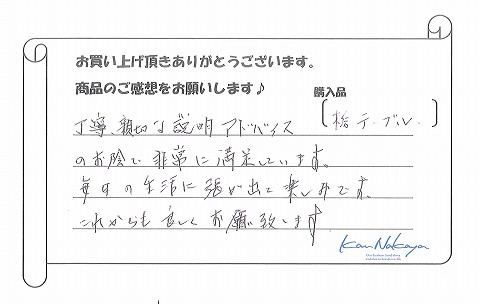 お買い上げ頂きありがとうございます。
商品のご感想をお願いします♪
購入品
栃テーブル
丁寧、親切な説明アドバイス
のお陰で非常に満足しています。
毎日の生活に張りが出て楽しみです。
これからも良しくお願い致します
Kan Nakaya